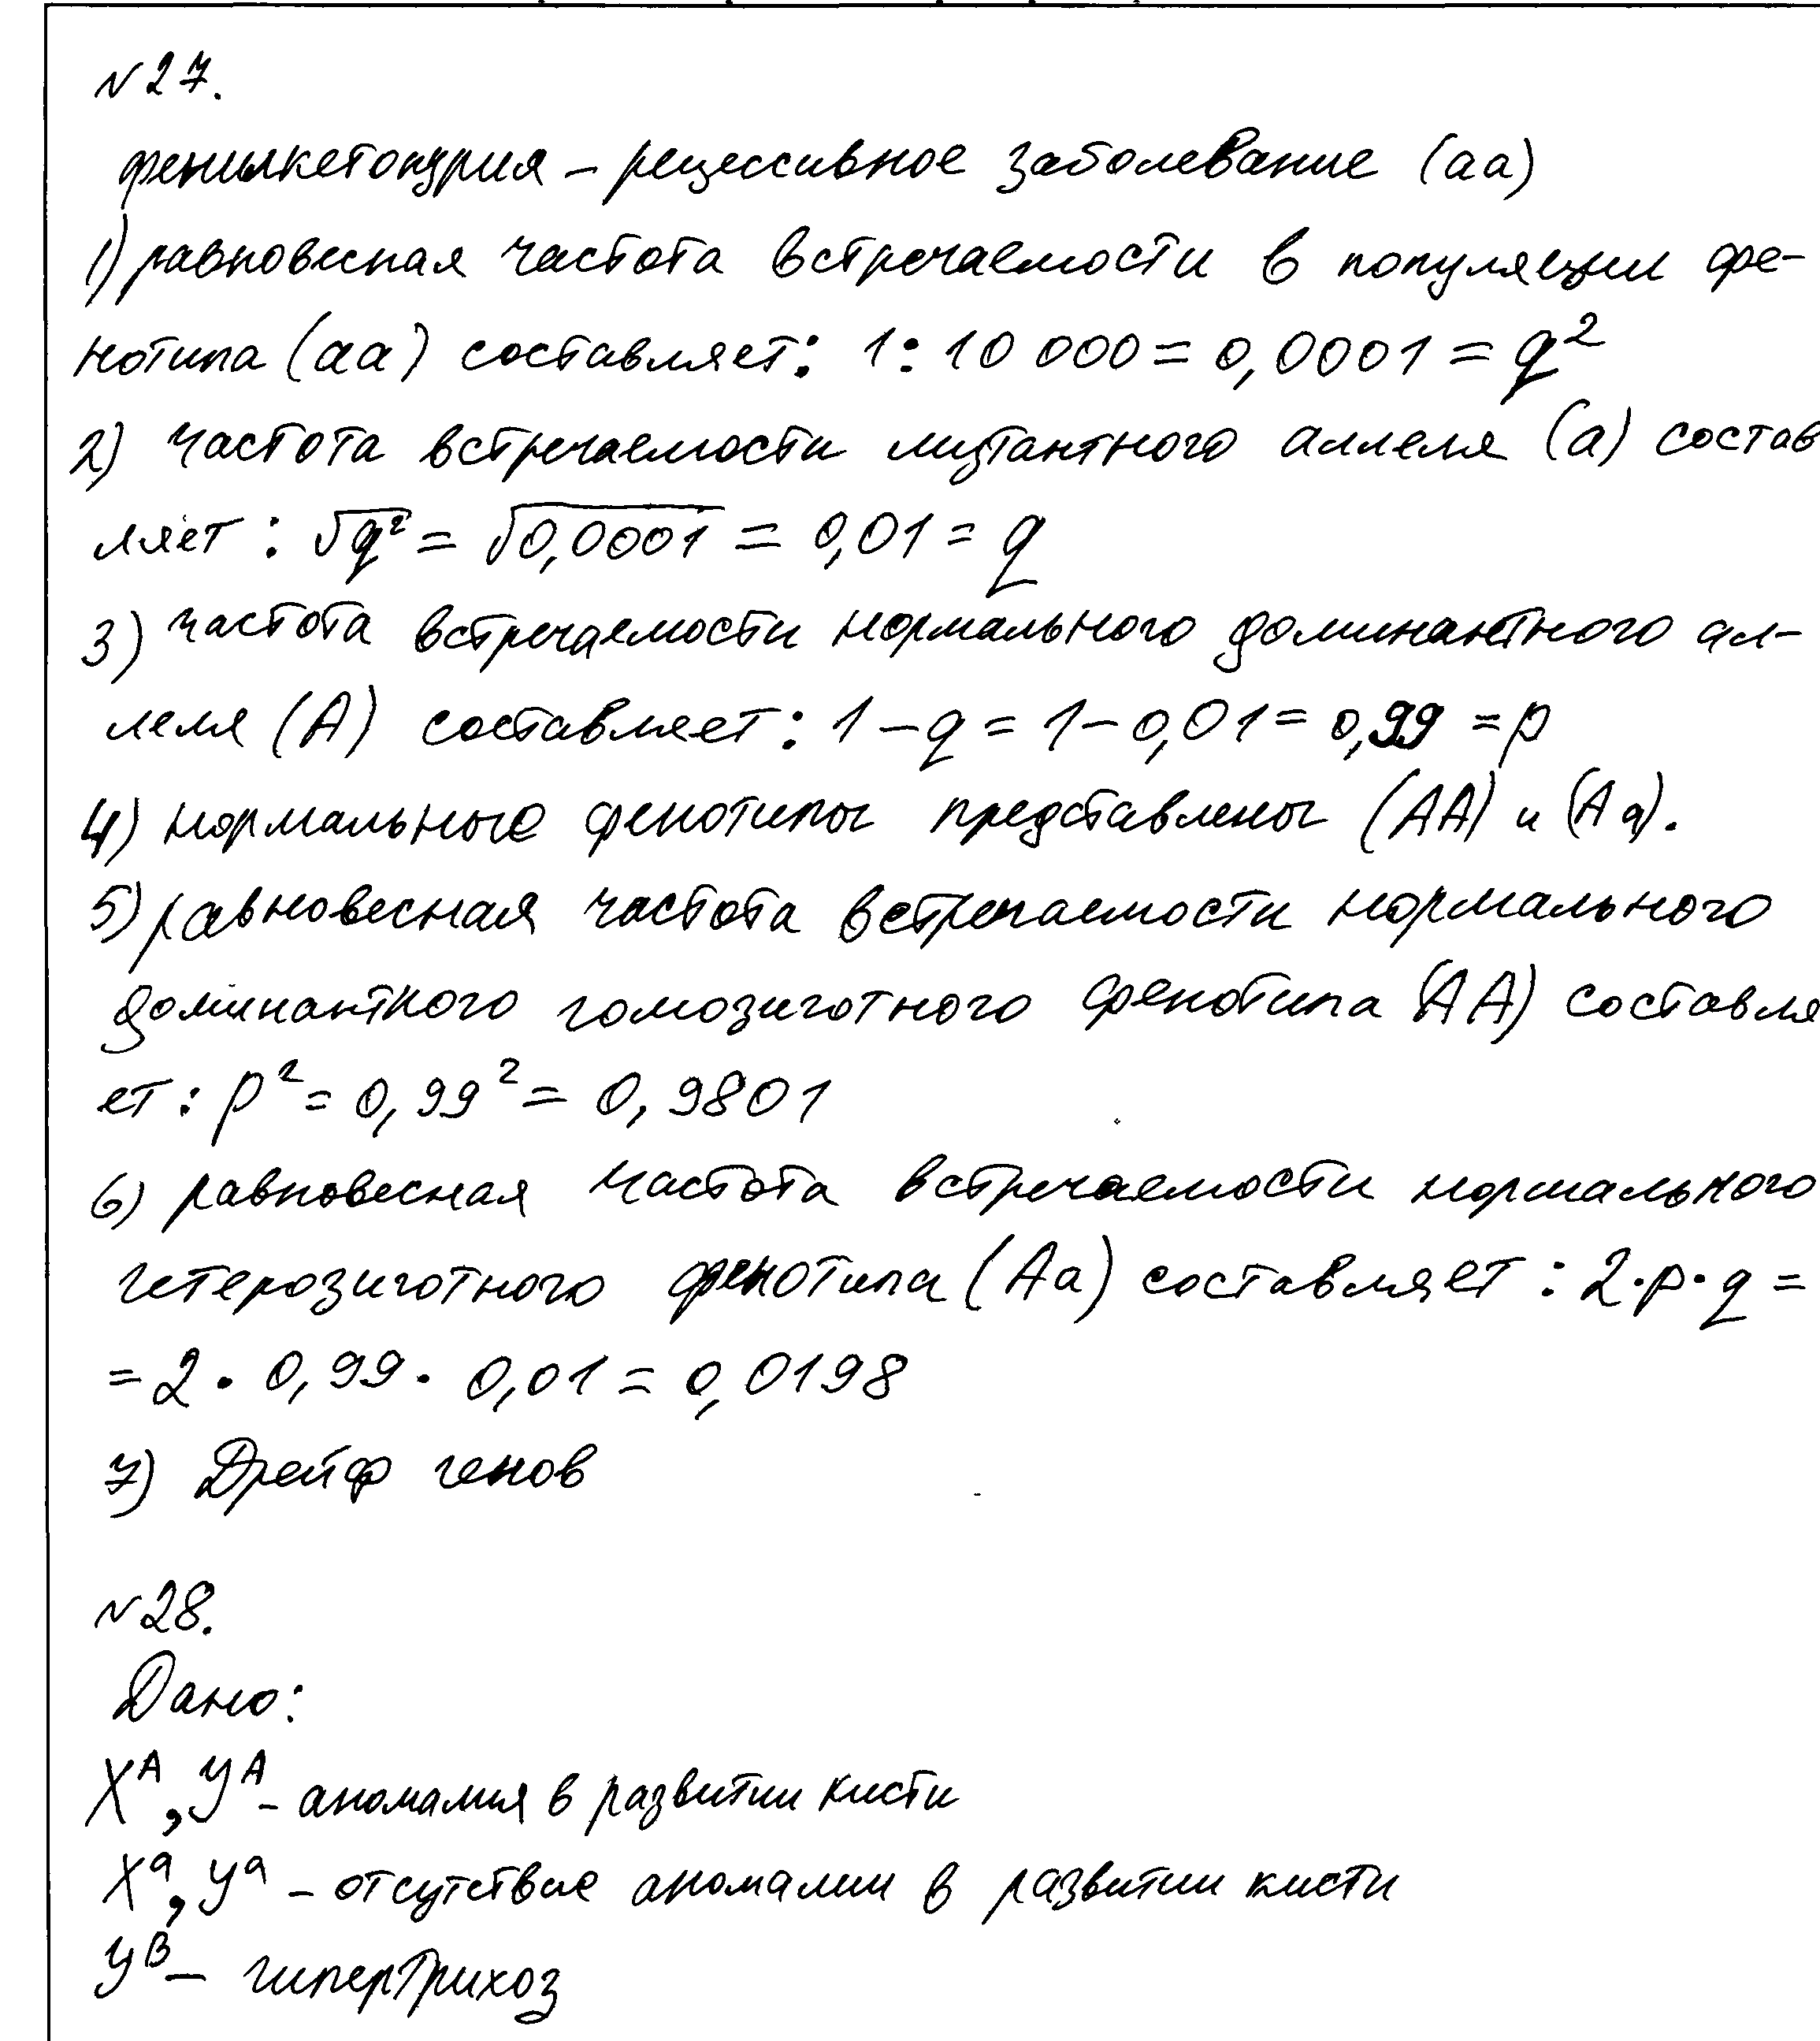 №27.
фенилкетонурия – рецессивное заболевание (аа)
1) равновесная частота встречаемости в популяции фе-
нотипа (аа) составляет: 1:10 000 = 0,0001 = q²
2) частота встречаемости мутантного аллеля (а) состав
ляет: √q² = √0,0001 = 0,01 = q
3) частота встречаемости нормального доминантного ал-
леля (А) составляет: 1 – q = 1 – 0,01 = 0,99 = p
4) нормальные фенотипы представлены (АА) и (Аа).
5) равновесная частота встречаемости нормального
доминантного гомозиготного фенотипа (АА) составля
ет: p² = 0,99² = 0,9801
6) равновесная частота встречаемости нормального
гетерозиготного фенотипа (Аа) составляет: 2·p·q =
= 2 · 0,99 · 0,01 = 0,0198
7) Дрейф генов
№28.
Дано:
Xᴬ, Yᴬ – аномалия в развитии кисти
Xᵃ, Yᵃ – отсутствие аномалии в развитии кисти
Yᴮ – гипертрихоз